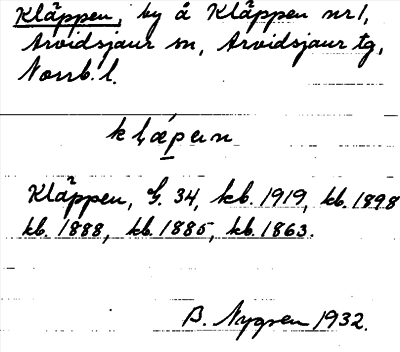 Kläppen, by å Kläppen nr 1,
Arvidsjaur sn, Arvidsjaur tg,
Norrb. l.
klæpen
Kläppen, G. 34, kb. 1919, kb. 1898
kb. 1888, kb. 1885, kb. 1863.
B. Nygren 1932.